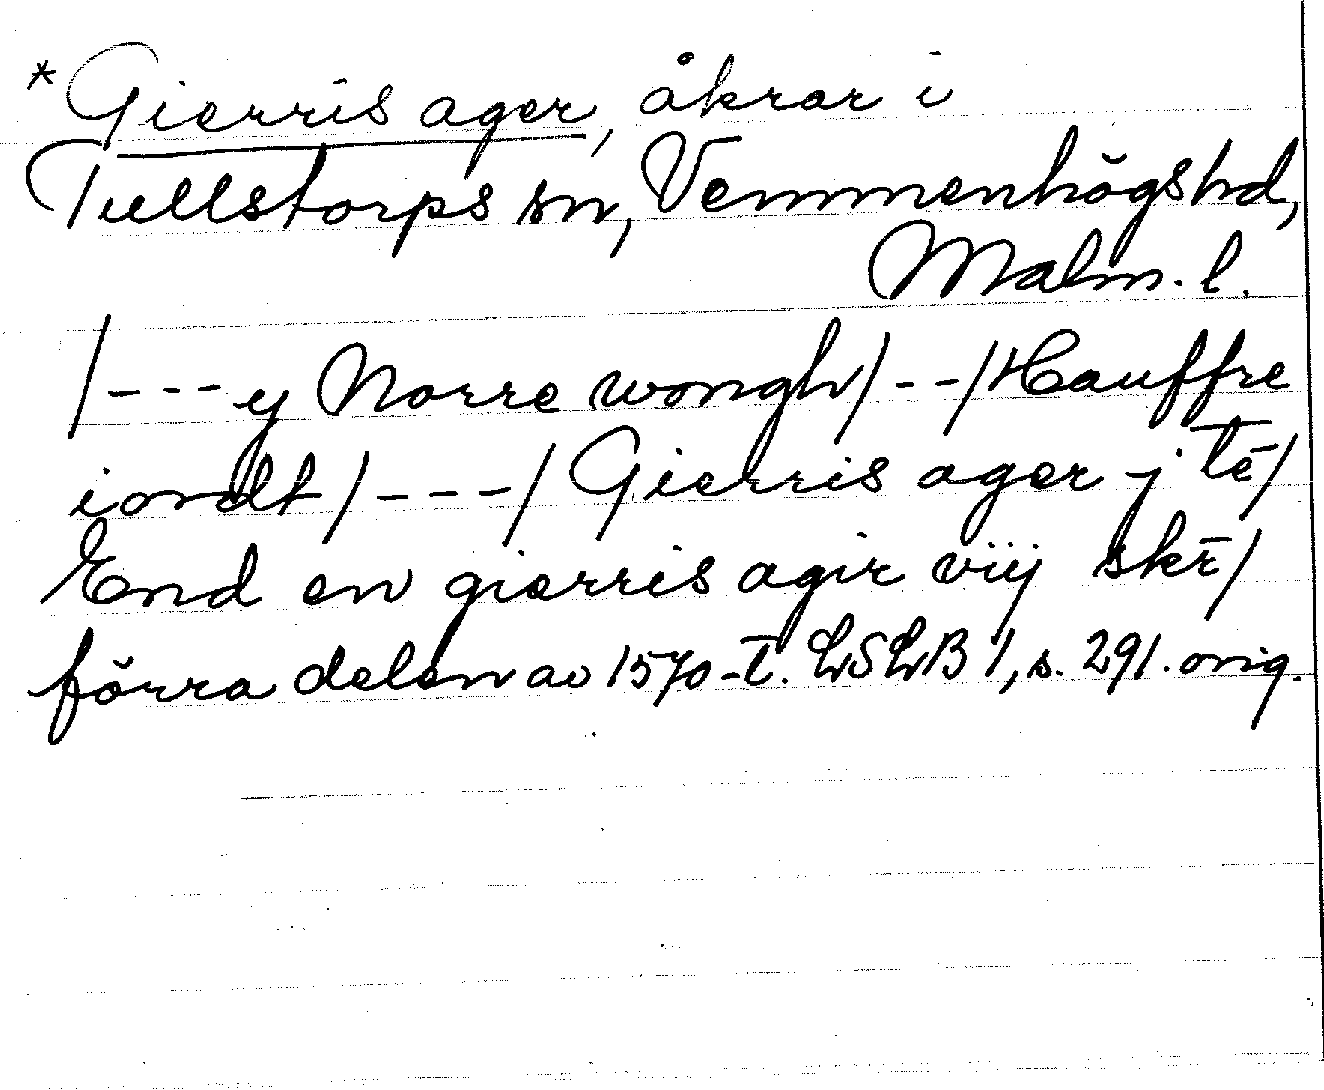 *Gierris ager, åkrar i
Tullstorps sn, Vemmenhögs hd,
Malm. l.
/---y Norre wongh/--/Hauffre
iordt/---/Gierris ager j tē/
End en gierris agir viij skē/
förra delen av 1570-t. LSLB 1, s. 291. orig.